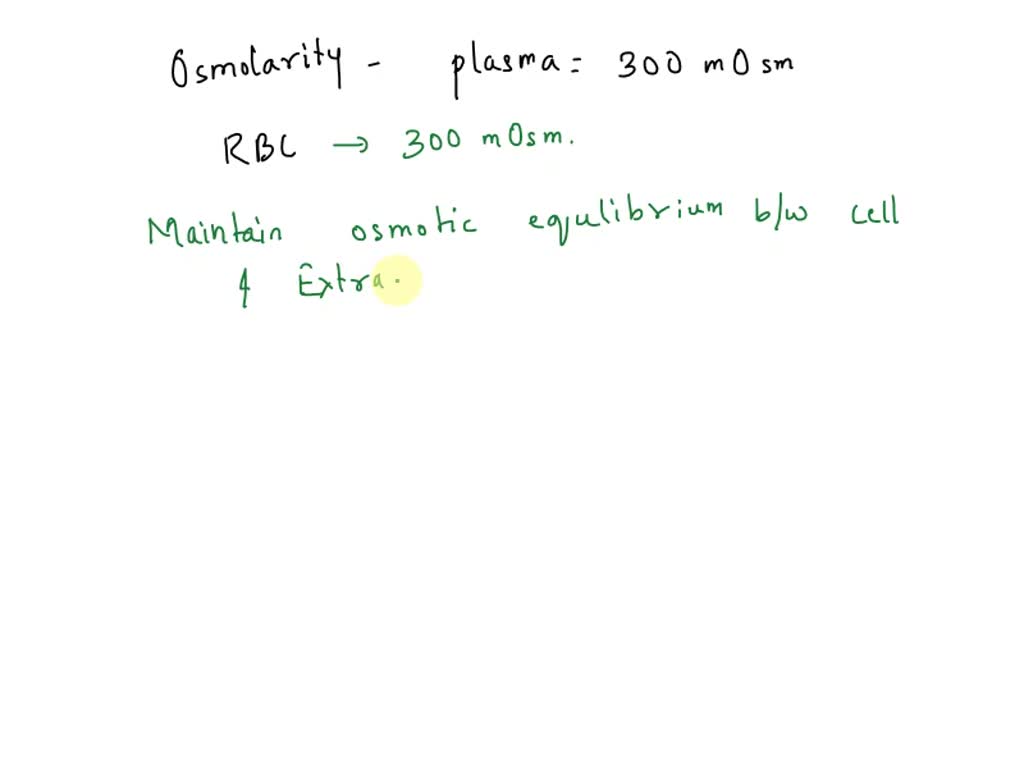 Osmolarity - plasma = 300 mOsm
RBC → 300 mOsm.
Maintain osmotic equlibrium b/w cell
& Extra.